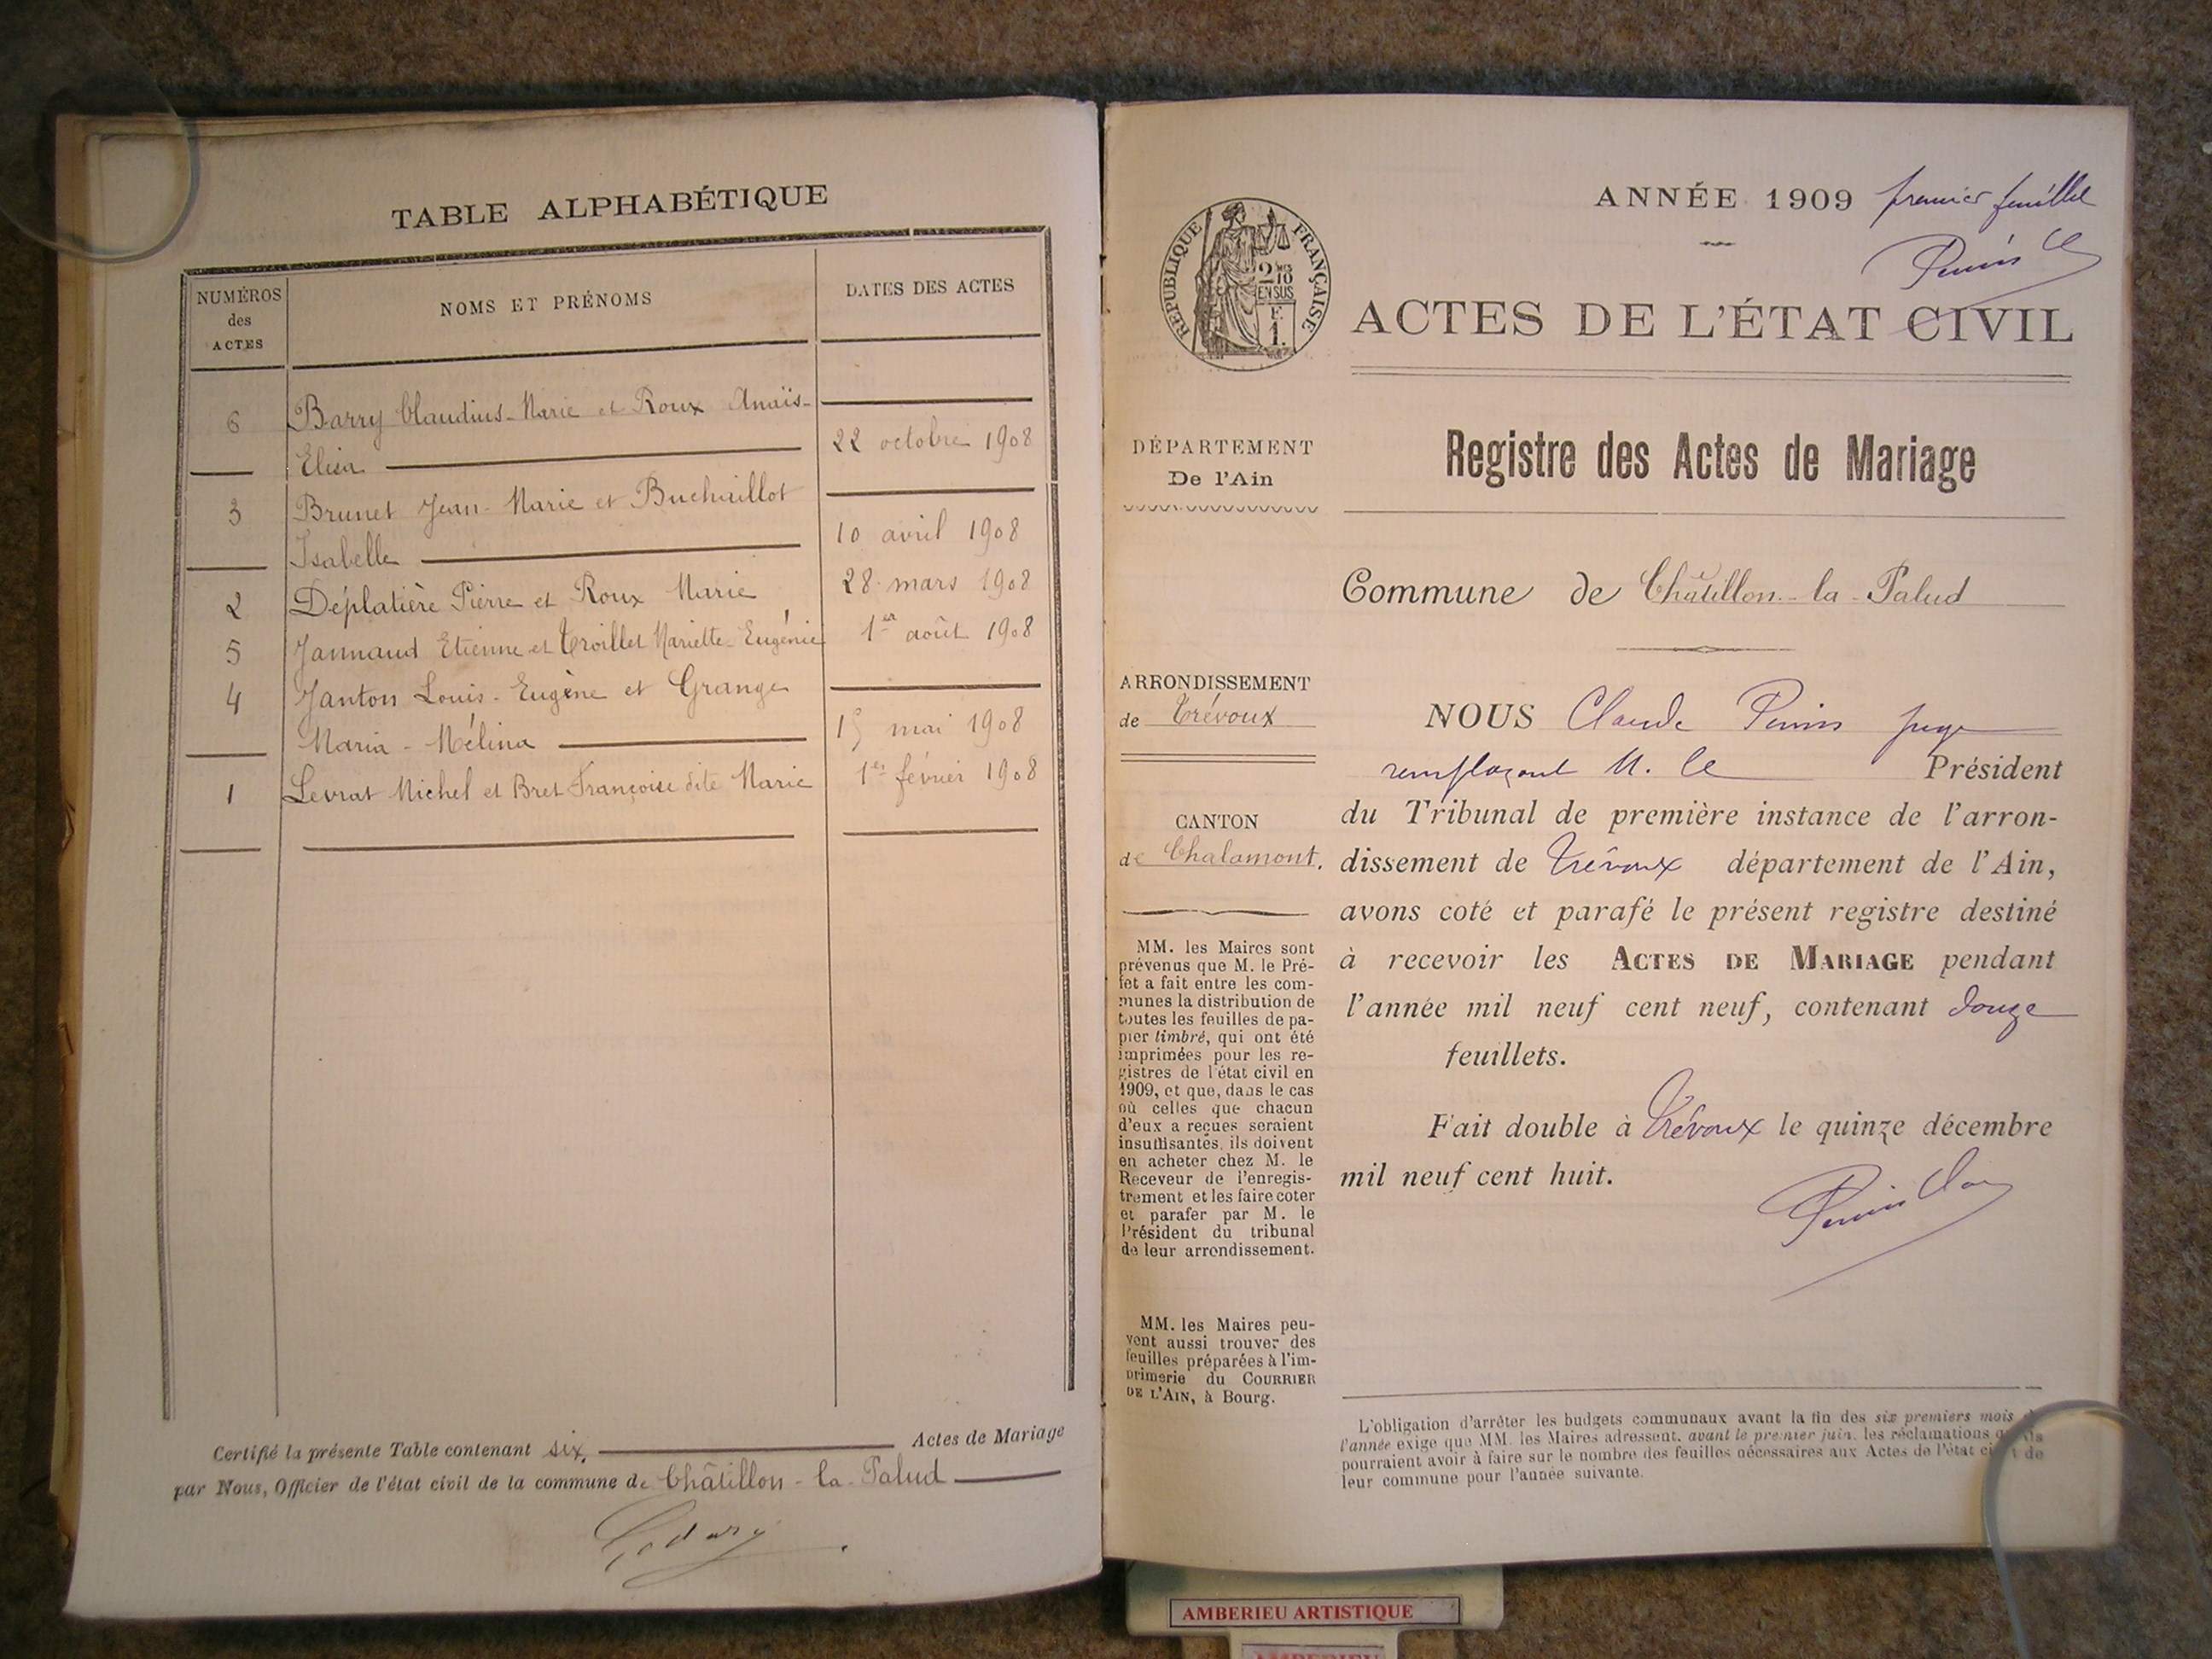 TABLE ALPHABÉTIQUE
NUMÉROS
des
ACTES
NOMS ET PRÉNOMS
DATES DES ACTES
6 Barry Claudius-Marie et Roux Anaïs-
Elisa 22 octobre 1908
3 Brunet Jean-Marie et Buchaillot
Isabelle 10 avril 1908
2 Déplatière Pierre et Roux Marie 28 mars 1908
5 Jannaud Etienne et Troillet Mariette-Eugénie 1er août 1908
4 Janton Louis-Eugène et Grange
Maria-Mélina 15 mai 1908
1 Levrat Michel et Bret Françoise dite Marie 1er février 1908
Certifié la présente Table contenant six, Actes de Mariage
par Nous, Officier de l'état civil de la commune de Châtillon-la-Palud
ANNÉE 1909 premier feuillet
RÉPUBLIQUE FRANÇAISE
2/10
EN SUS
F.
1.
ACTES DE L'ÉTAT CIVIL
DÉPARTEMENT
De l'Ain
Registre des Actes de Mariage
Commune de Châtillon-la-Palud
ARRONDISSEMENT
de Trévoux
CANTON
de Chalamont.
MM. les Maires sont
prévenus que M. le Pré-
fet a fait entre les com-
munes la distribution de
toutes les feuilles de pa-
pier timbré, qui ont été
imprimées pour les re-
gistres de l'état civil en
1909, et que, dans le cas
où celles que chacun
d'eux a reçues seraient
insuffisantes, ils doivent
en acheter chez M. le
Receveur de l'enregis-
trement et les faire coter
et parafer par M. le
Président du tribunal
de leur arrondissement.
MM. les Maires peu-
vent aussi trouver des
feuilles préparées à l'im-
primerie du COURRIER
DE L'AIN, à Bourg.
NOUS Claude juge
remplaçant M. le Président
du Tribunal de première instance de l'arron-
dissement de Trévoux département de l'Ain,
avons coté et parafé le présent registre destiné
à recevoir les ACTES DE MARIAGE pendant
l'année mil neuf cent neuf, contenant douze
feuillets.
Fait double à Trévoux le quinze décembre
mil neuf cent huit.
L'obligation d'arrêter les budgets communaux avant la fin des six premiers mois de
l'année exige que MM. les Maires adressent, avant le premier juin, les réclamations qu'ils
pourraient avoir à faire sur le nombre des feuilles nécessaires aux Actes de l'état civil de
leur commune pour l'année suivante.
AMBERIEU ARTISTIQUE
AMBERIEU